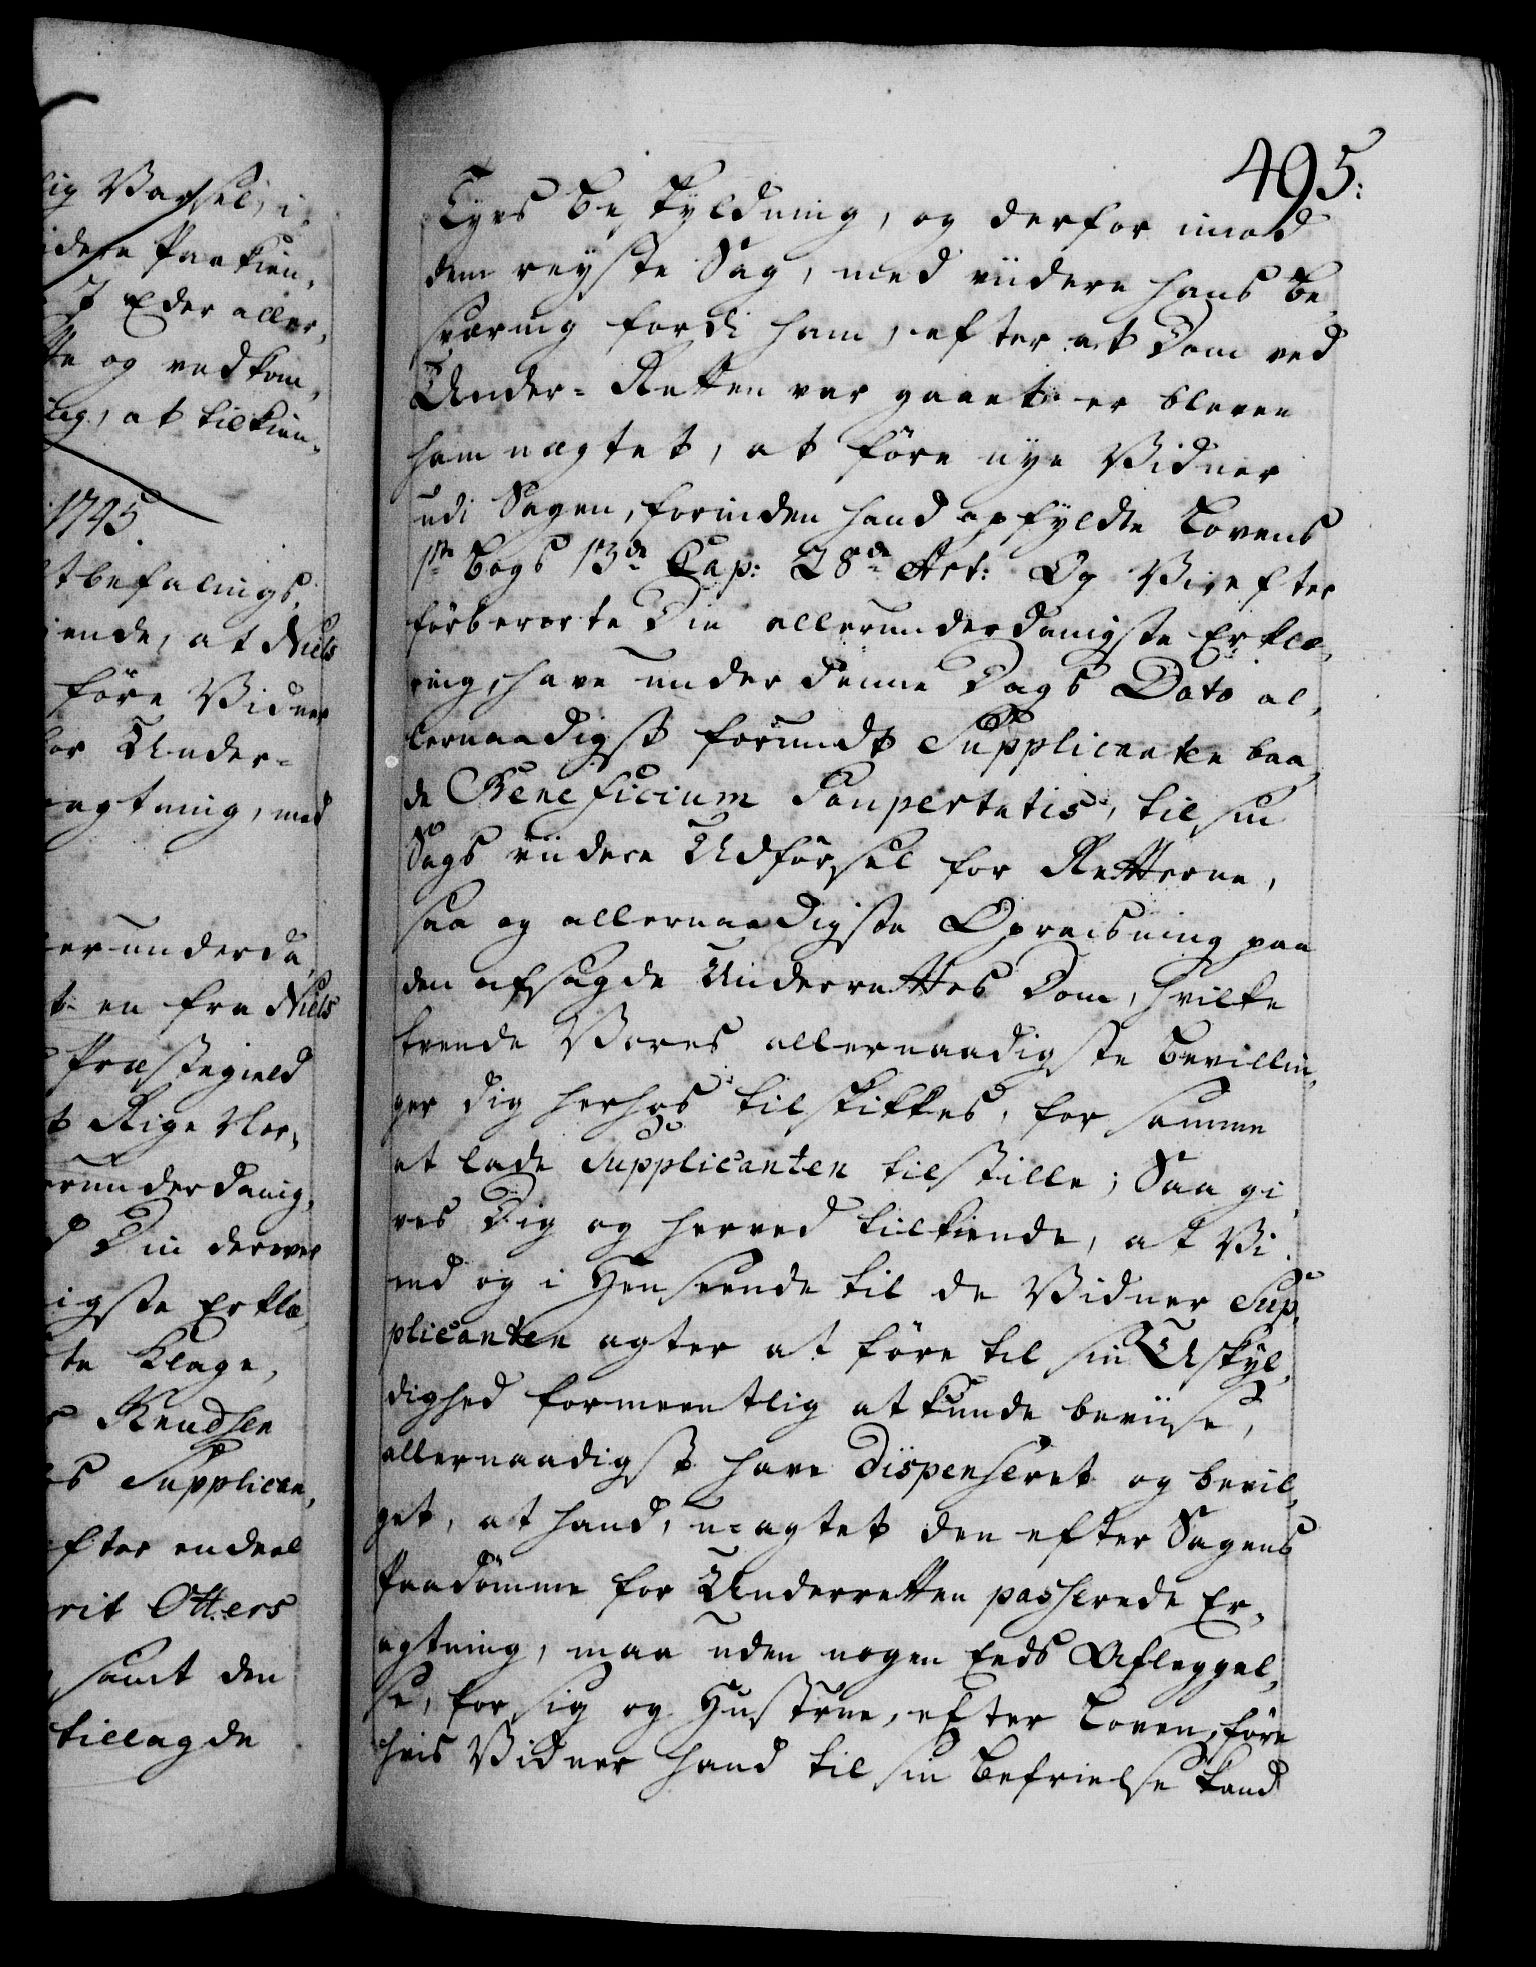 lig Varsel, i
videre Paakien,
I Eder aller,
te og vedkom,
lig, at tilkien,
1745.
tbefalings
iende, at Niels
före Vidner
for Under-
agtning, med
erunderda,
t en fra Niels
Præstegield
t Rige Nor,
erunderdanig,
d Din derover
igste Erklæ,
te Klage,
Knudsen
es Supplican,
efter endeel
rit Otters
samt den
tillagde
495:
Tyvs Beskyldning, og derfor imod
dem reyste Sag, med viidere hans Be,
sværing fordi ham, efter at Dom ved
Under-Retten var gaaet er bleven
ham nægtet, at före nye Vidner
udi Sagen, forinden hand opfyldte Lovens
1ste Bogs 13de Cap: 28de Art: Og Vi efter
förberörte Din allerunderdanigste Erklæ,
ring, have under denne Dags Dato al,
lernaadigst forundt Supplicanten baa,
de Beneficium Paupertatis, til sin
Sags viidere Udförsel for Retterne,
saa og allernaadigste Opreisning paa
den afsagde Underrettes Dom, hvilke
tvende Vores allernaadigste Bevillin,
ger dig herhos tilskikkes, for samme
at lade Supplicanten tilstille; Saa gi,
ves Dig og herved tilkiende, at Vi
end og i Henseende til de Vidner Sup,
plicanten agter at före til sin Uskyl,
dighed formeentlig at kunde beviise,
allernaadigst have dispenseret og bevil,
get, at hand, uagtet den efter Sagens
Paadömme for Underretten passerede Er,
agtning, maa uden nogen Eeds Aflæggel,
se, for sig og Hustrue, efter Loven, före
hvis Vidner hand til sin Befrielse kand